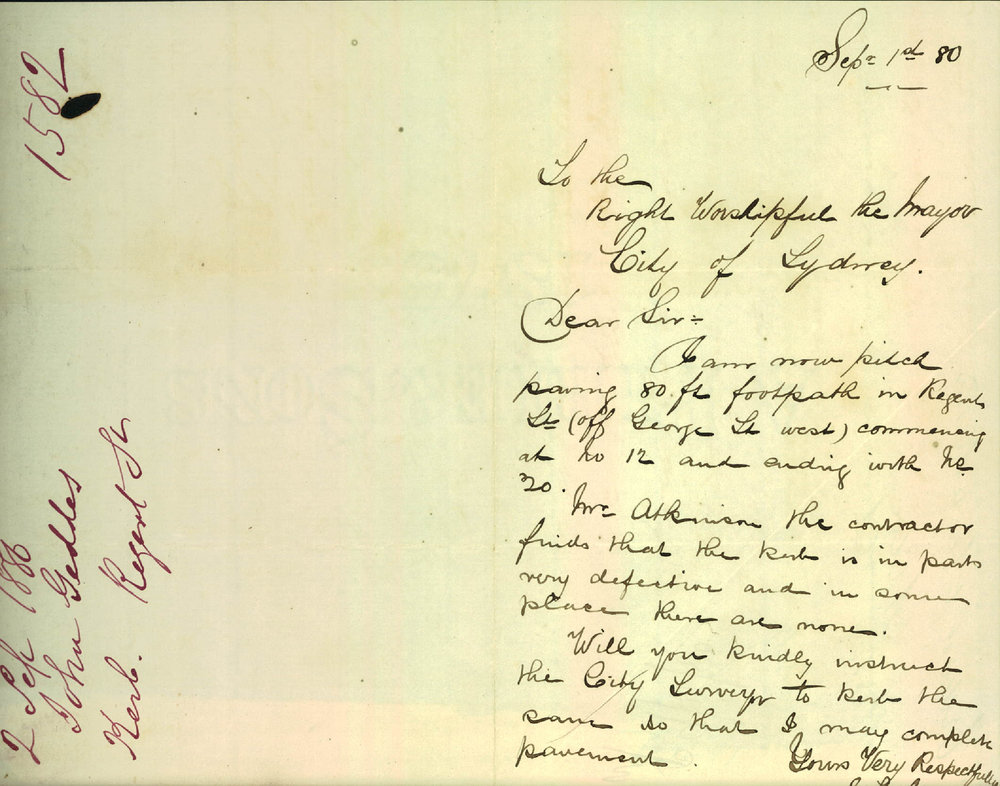 Sepr 1st 80
To the
Right Worshipful the Mayor
City of Sydney.
Dear Sir =
I am now pitch
paving 80 ft footpath in Regent
St (off George St west) commencing
at No 12 and ending with No
20.
Mr Atkinson the contractor
finds that the kerb is in parts
very defective and in some
place there are none.
Will you kindly instruct
the City Surveyor to kerb the
same so that I may complete
pavement.
Yours Very Respectfully
1582
2 Sep 188
John Geddes
Kerb. Regent St